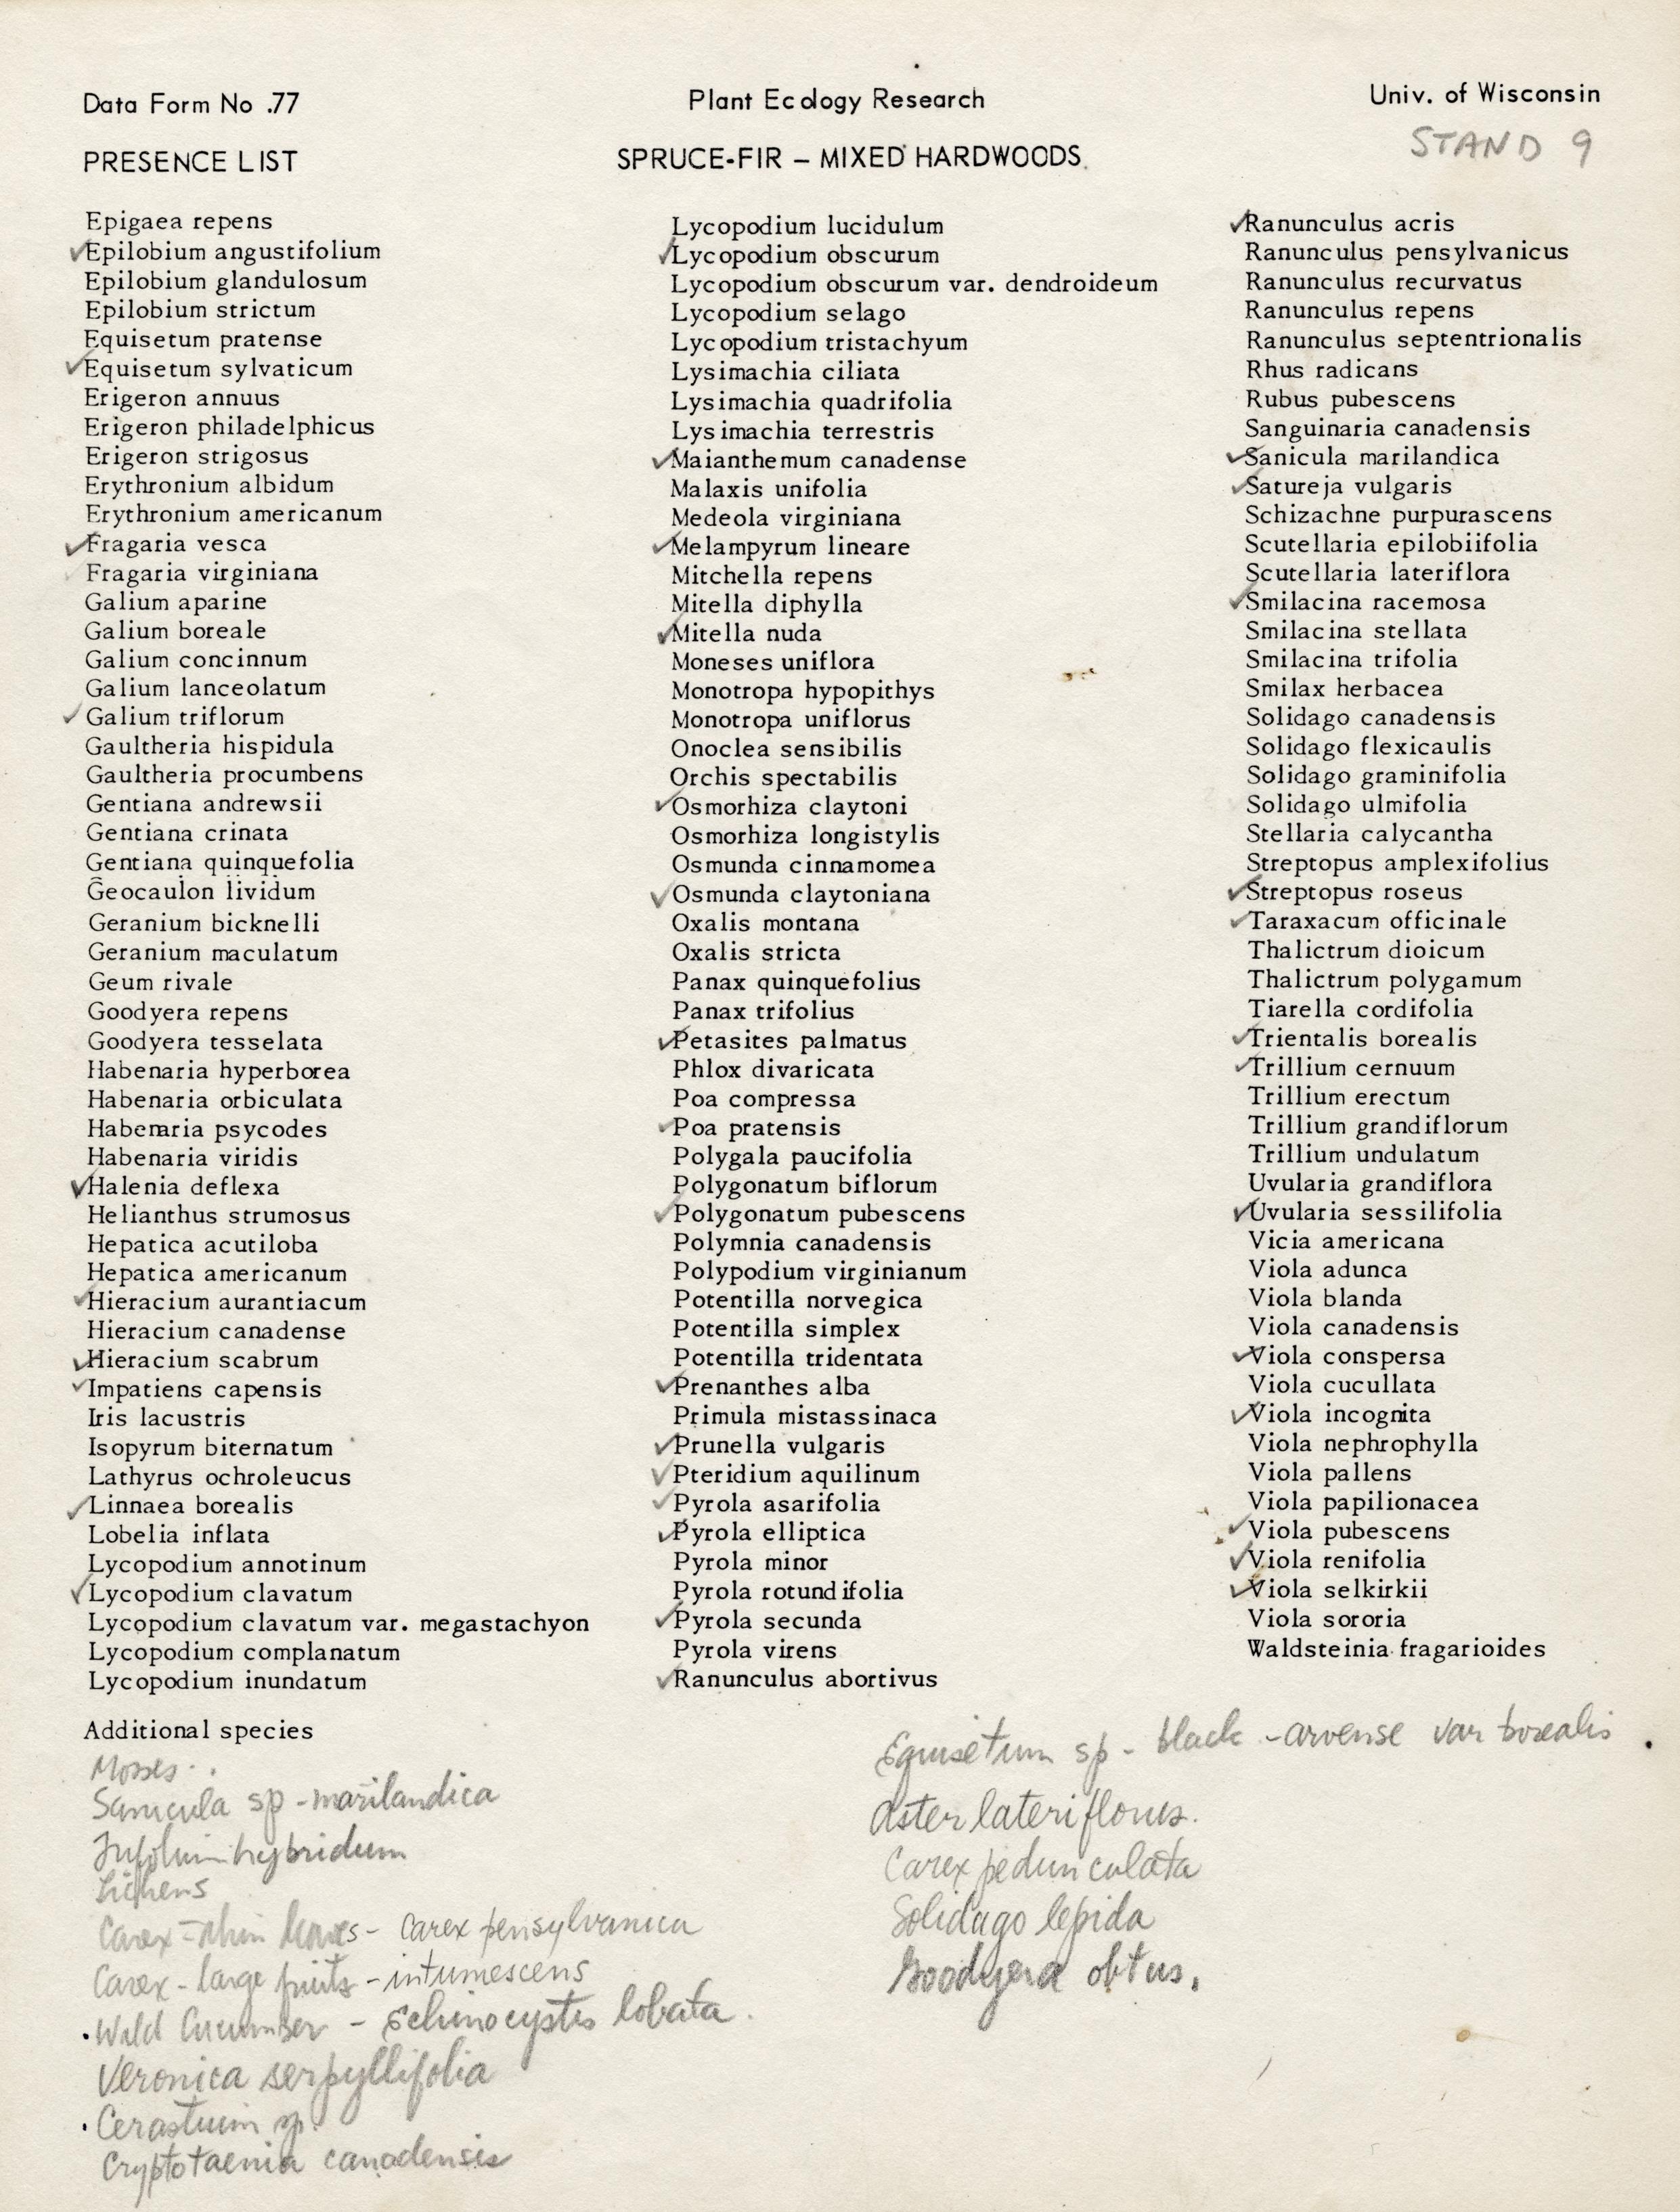 Data Form No .77
Plant Ecology Research
Univ. of Wisconsin
PRESENCE LIST
SPRUCE-FIR – MIXED HARDWOODS
STAND 9
Epigaea repens
✓Epilobium angustifolium
Epilobium glandulosum
Epilobium strictum
Equisetum pratense
✓Equisetum sylvaticum
Erigeron annuus
Erigeron philadelphicus
Erigeron strigosus
Erythronium albidum
Erythronium americanum
✓Fragaria vesca
✓Fragaria virginiana
Galium aparine
Galium boreale
Galium concinnum
Galium lanceolatum
✓Galium triflorum
Gaultheria hispidula
Gaultheria procumbens
Gentiana andrewsii
Gentiana crinata
Gentiana quinquefolia
Geocaulon lividum
Geranium bicknelli
Geranium maculatum
Geum rivale
Goodyera repens
Goodyera tesselata
Habenaria hyperborea
Habenaria orbiculata
Habenaria psycodes
Habenaria viridis
✓Halenia deflexa
Helianthus strumosus
Hepatica acutiloba
Hepatica americanum
✓Hieracium aurantiacum
Hieracium canadense
✓Hieracium scabrum
✓Impatiens capensis
Iris lacustris
Isopyrum biternatum
Lathyrus ochroleucus
✓Linnaea borealis
Lobelia inflata
Lycopodium annotinum
✓Lycopodium clavatum
Lycopodium clavatum var. megastachyon
Lycopodium complanatum
Lycopodium inundatum
Lycopodium lucidulum
✓Lycopodium obscurum
Lycopodium obscurum var. dendroideum
Lycopodium selago
Lycopodium tristachyum
Lysimachia ciliata
Lysimachia quadrifolia
Lysimachia terrestris
✓Maianthemum canadense
Malaxis unifolia
Medeola virginiana
✓Melampyrum lineare
Mitchella repens
Mitella diphylla
✓Mitella nuda
Moneses uniflora
Monotropa hypopithys
Monotropa uniflorus
Onoclea sensibilis
Orchis spectabilis
✓Osmorhiza claytoni
Osmorhiza longistylis
Osmunda cinnamomea
✓Osmunda claytoniana
Oxalis montana
Oxalis stricta
Panax quinquefolius
Panax trifolius
✓Petasites palmatus
Phlox divaricata
Poa compressa
✓Poa pratensis
Polygala paucifolia
Polygonatum biflorum
✓Polygonatum pubescens
Polymnia canadensis
Polypodium virginianum
Potentilla norvegica
Potentilla simplex
Potentilla tridentata
✓Prenanthes alba
Primula mistassinaca
✓Prunella vulgaris
✓Pteridium aquilinum
✓Pyrola asarifolia
✓Pyrola elliptica
Pyrola minor
Pyrola rotundifolia
✓Pyrola secunda
Pyrola virens
✓Ranunculus abortivus
✓Ranunculus acris
Ranunculus pensylvanicus
Ranunculus recurvatus
Ranunculus repens
Ranunculus septentrionalis
Rhus radicans
Rubus pubescens
Sanguinaria canadensis
✓Sanicula marilandica
✓Satureja vulgaris
Schizachne purpurascens
Scutellaria epilobiifolia
Scutellaria lateriflora
✓Smilacina racemosa
Smilacina stellata
Smilacina trifolia
Smilax herbacea
Solidago canadensis
Solidago flexicaulis
Solidago graminifolia
Solidago ulmifolia
Stellaria calycantha
Streptopus amplexifolius
✓Streptopus roseus
✓Taraxacum officinale
Thalictrum dioicum
Thalictrum polygamum
Tiarella cordifolia
✓Trientalis borealis
✓Trillium cernuum
Trillium erectum
Trillium grandiflorum
Trillium undulatum
Uvularia grandiflora
✓Uvularia sessilifolia
Vicia americana
Viola adunca
Viola blanda
Viola canadensis
✓Viola conspersa
Viola cucullata
✓Viola incognita
Viola nephrophylla
Viola pallens
Viola papilionacea
✓Viola pubescens
✓Viola renifolia
✓Viola selkirkii
Viola sororia
Waldsteinia fragarioides
Additional species
Mosses
Sanicula sp - marilandica
Trifolium hybridum
Lichens
Carex - thin leaves - Carex pensylvanica
Carex - large fruits - intumescens
Wild Cucumber - Echinocystis lobata.
Veronica serpyllifolia
Cerastium sp.
Cryptotaenia canadensis
Equisetum sp - black - arvense var borealis
Aster lateriflorus.
Carex pedunculata
Solidago lepida
Goodyera obtus.